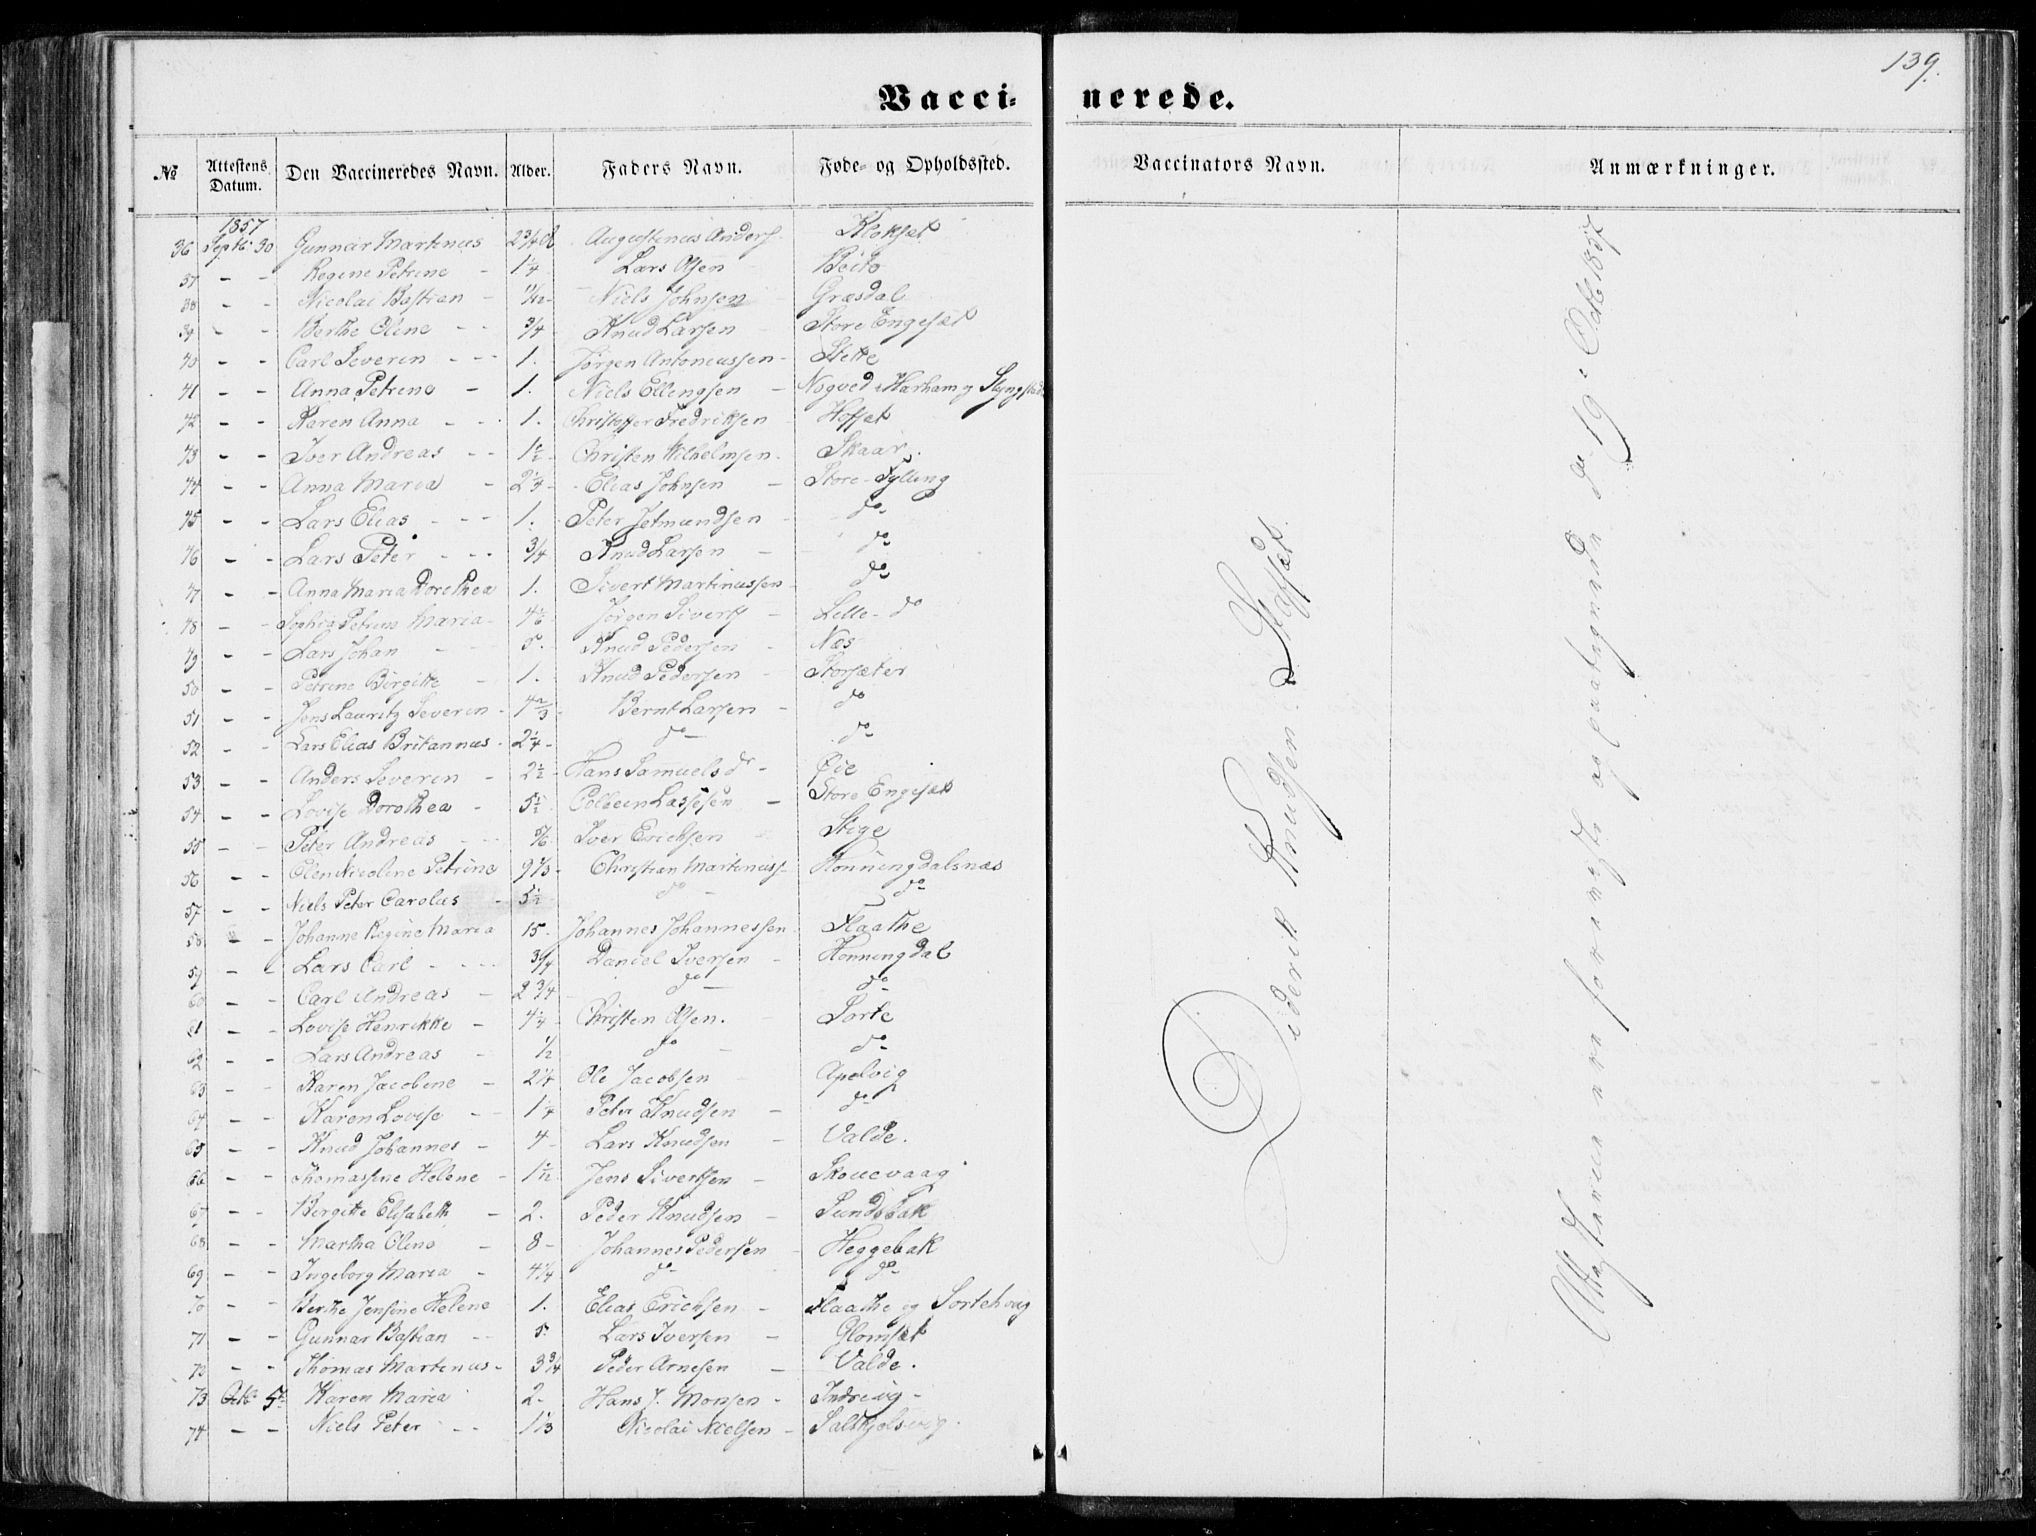 139.
Vacci-
nerede.
No
Attestens Datum.
Den Vaccineredes Navn.
Alder.
Faders Navn.
Føde- og Opholdssted.
Vaccinators Navn.
Anmærkninger.
1857
36 Septb: 30 Gunnar Martinus 2 3/4 Augustinus Anders. Klokset
37 - - Regine Petrine - 1 1/4 Lars Olsen Beito
38 - - Nicolai Bastian - 11/12 Niels Johnsen Græsdal
39 - - Berthe Oline - - 3/4 Knud Larsen Store Engeset
40 - - Carl Severin - - - 1. Jørgen Antoniussen - Stette
41 - - Anna Petrine - 1. Niels Ellingsen - Nogved i Harham og Slyngstad
42 - - Karen Anna - - 1. Christoffer Fredriksen Hofset
43 - - Iver Andreas - - 1 1/2 Christen Wilhelmsen. Skaar.
44 - - Anna Maria - 2 1/4 - Elias Johnsen - Store-Tylling
45 - - Lars Elias - - - 1. Peter Jetmundsen - do
46 - - Lars Peter - - - 3/4 Knud Larsen - do
47 - - Anna Maria Dorothea 1. Sivert Martinussen do
48 - - Sophia Petrine Maria - 4 1/2 Jørgen Siverts - Lille- do
49 - - Lars Johan - 5. Knud Pedersen - Næs
50 - - Petrine Birgitte - 1. Knud Pedersen - Storsæter
51 - - Jens Lauritz Severin - 4 2/3 Bernt Larsen - do
52 - - Lars Elias Britannus - 2 1/4 - do - do
53 - - Anders Severin - 2 1/2 - Hans Samuels Øie
54 - - Lovise Dorothea - 5 1/2 Colbeen Lassesen - Store Engeset
55 - - Peter Andreas 5/6 Iver Ericksen Stige
56 - - Olen Nicoline Petrine 9 1/3 - Christian Martinuss. Honningdalsnæs
57 - - Niels Peter Carolus - 5 1/2 do - do
58 - - Johanne Regine Maria 15. Johannes Johannessen Flaathe
59 - - Lars Carl - - - 3/4 Daniel Iversen - Honningdal
60 - - Carl Andreas - 2 3/4 do - do
61 - - Lovise Henrikke - 4 1/4 Christen Olsen. - Sorte
62 - - Lars Andreas - 1/2 do - do
63 - - Karen Jacobine - 2 1/4 Ole Jacobsen Apelvig
64 - - Karen Lovise - - 1 1/4 Peter Knudsen - do
65 - - Knud Johannes - 4 - Lars Knudsen - Valde.
66 - - Thomasine Helene - 1 1/12 Jens Sivertsen - Skouevaag
67 - - Birgitte Elisabeth - 2. Peder Knudsen - Sundsbak
68 - - Martha Oline - 8 - Johannes Pedersen - Heggebak
69 - - Ingeborg Maria - 4 1/4 do - do
70 - - Berthe Jensine Helene 1. Elias Ericksen - Flaathe og Sortehoug
71 - - Gunnar Bastian - - 5 Lars Iversen - Glomset
72 - - Thomas Martinus - 3 3/4 Peder Arnesen - Valde.
73 Octb: 5te Karen Maria 2 - Hans J. Monsen - Indreig -
74 - - Niels Peter - - 1 1/3 Nicolai Nielsen - Salthjelsvig.
Diderik Knudsen Hofset.
Attesterne ere foreviste og paategnede d. 19de Octb 1857